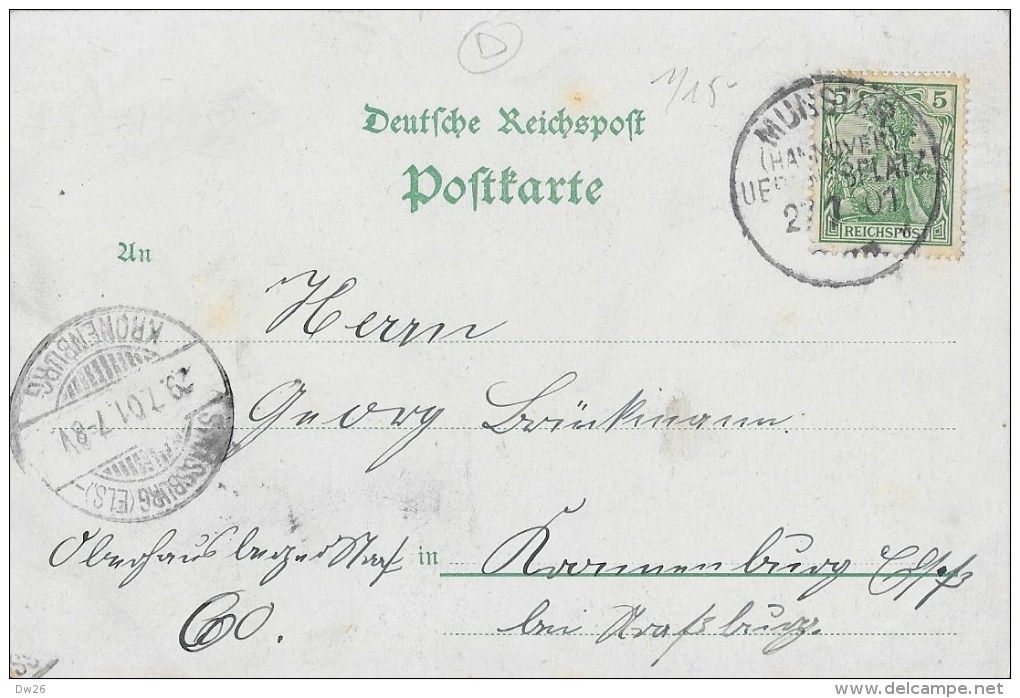 D
1/15
Deutsche Reichspost
Postkarte
MUNSTER
(HANNOVER)
UEBUNGSPLATZ
27 7 01
5 5
REICHSPOST
An
Herrn
Georg Brückmann.
KRONENBURG
29.7.01.7-8V.
STRASSBURG (ELS)
Oberhausbergerstraß in Kronnenburg Elsß
60. bei Straßburg.
Dw26
www.delcampe.net